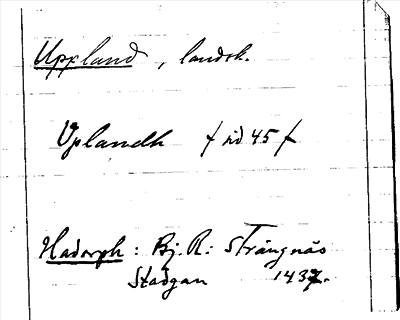 Uppland, landsk.
Uplandh f sid 45 f
Hadorph: Bj. R: Strängnäs
Stadgan 1437.